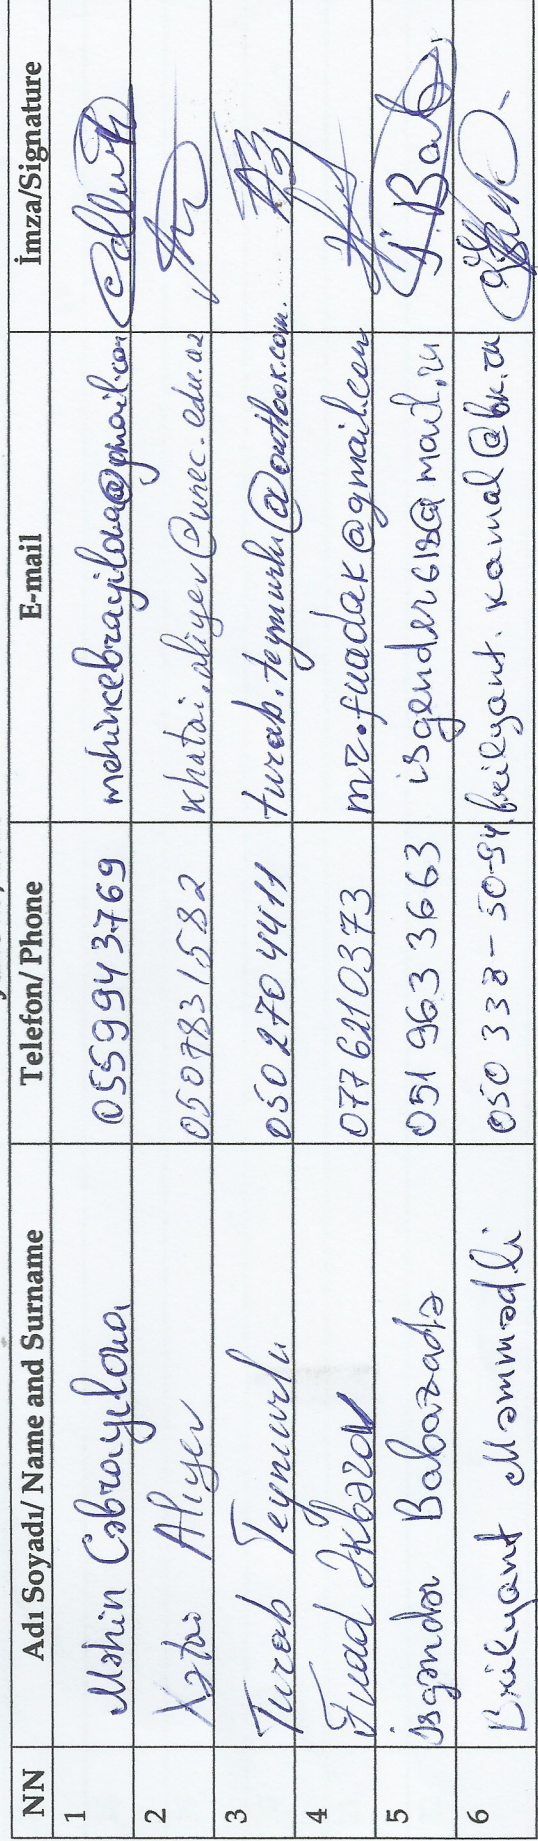 NN Adı Soyadı/ Name and Surname Telefon/ Phone E-mail İmza/Signature
1 Məhin Cəbrayılova 0559943769 mehincebrayilova@gmail.com
2 Xətai Alıyev 0507831582 khatai.aliyev@unec.edu.az
3 Turab Teymurlu 050 270 4411 turab.teymurlu@outlook.com.
4 Fuad Əkbərov 077 6210373 mr.fuadak@gmail.com
5 İsgəndər Babazadə 051 963 3663 isgender613@mail.ru
6 Brilyant Məmmədli 050 338-50-94 brilyant.kamal@bk.ru